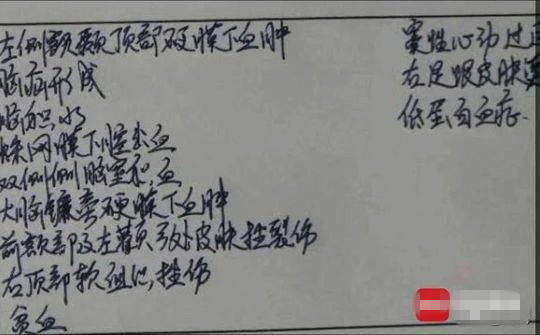 左侧额颞顶部硬膜下血肿
脑疝形成
脑积水
蛛网膜下腔出血
双侧侧脑室积血
大脑镰旁硬膜下血肿
前额部及左眉弓处皮肤挫裂伤
右顶部软组织挫伤
贫血
窦性心动过
右足跟皮肤
低蛋白血症.